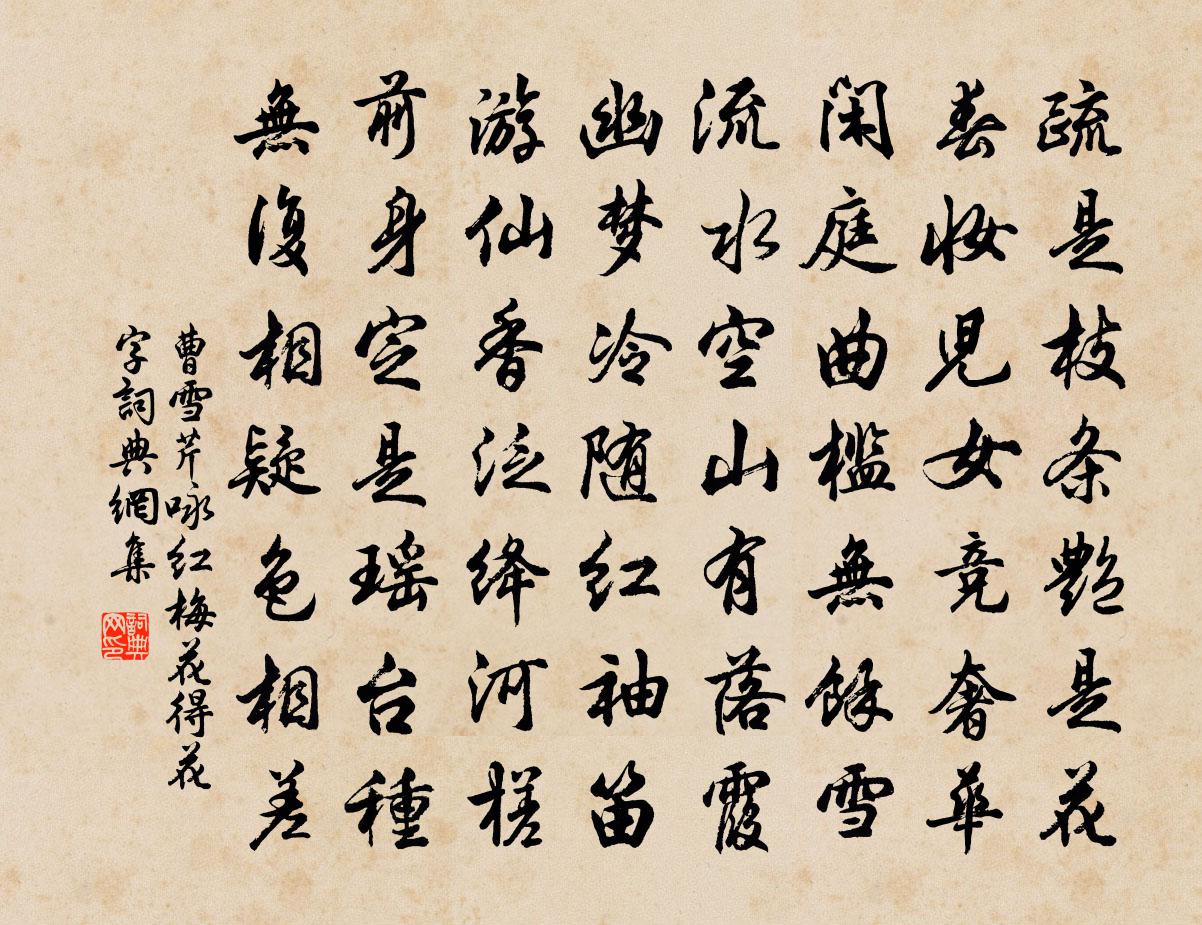 疏是枝条艷是花
春妝児女竞奢華
闲庭曲槛無餘雪
流水空山有落霞
幽梦冷随红袖笛
游仙香泛绛河槎
前身定是瑶台種
無復相疑色相差
曹雪芹咏红梅花得花
字詞典網集
詞典
网印